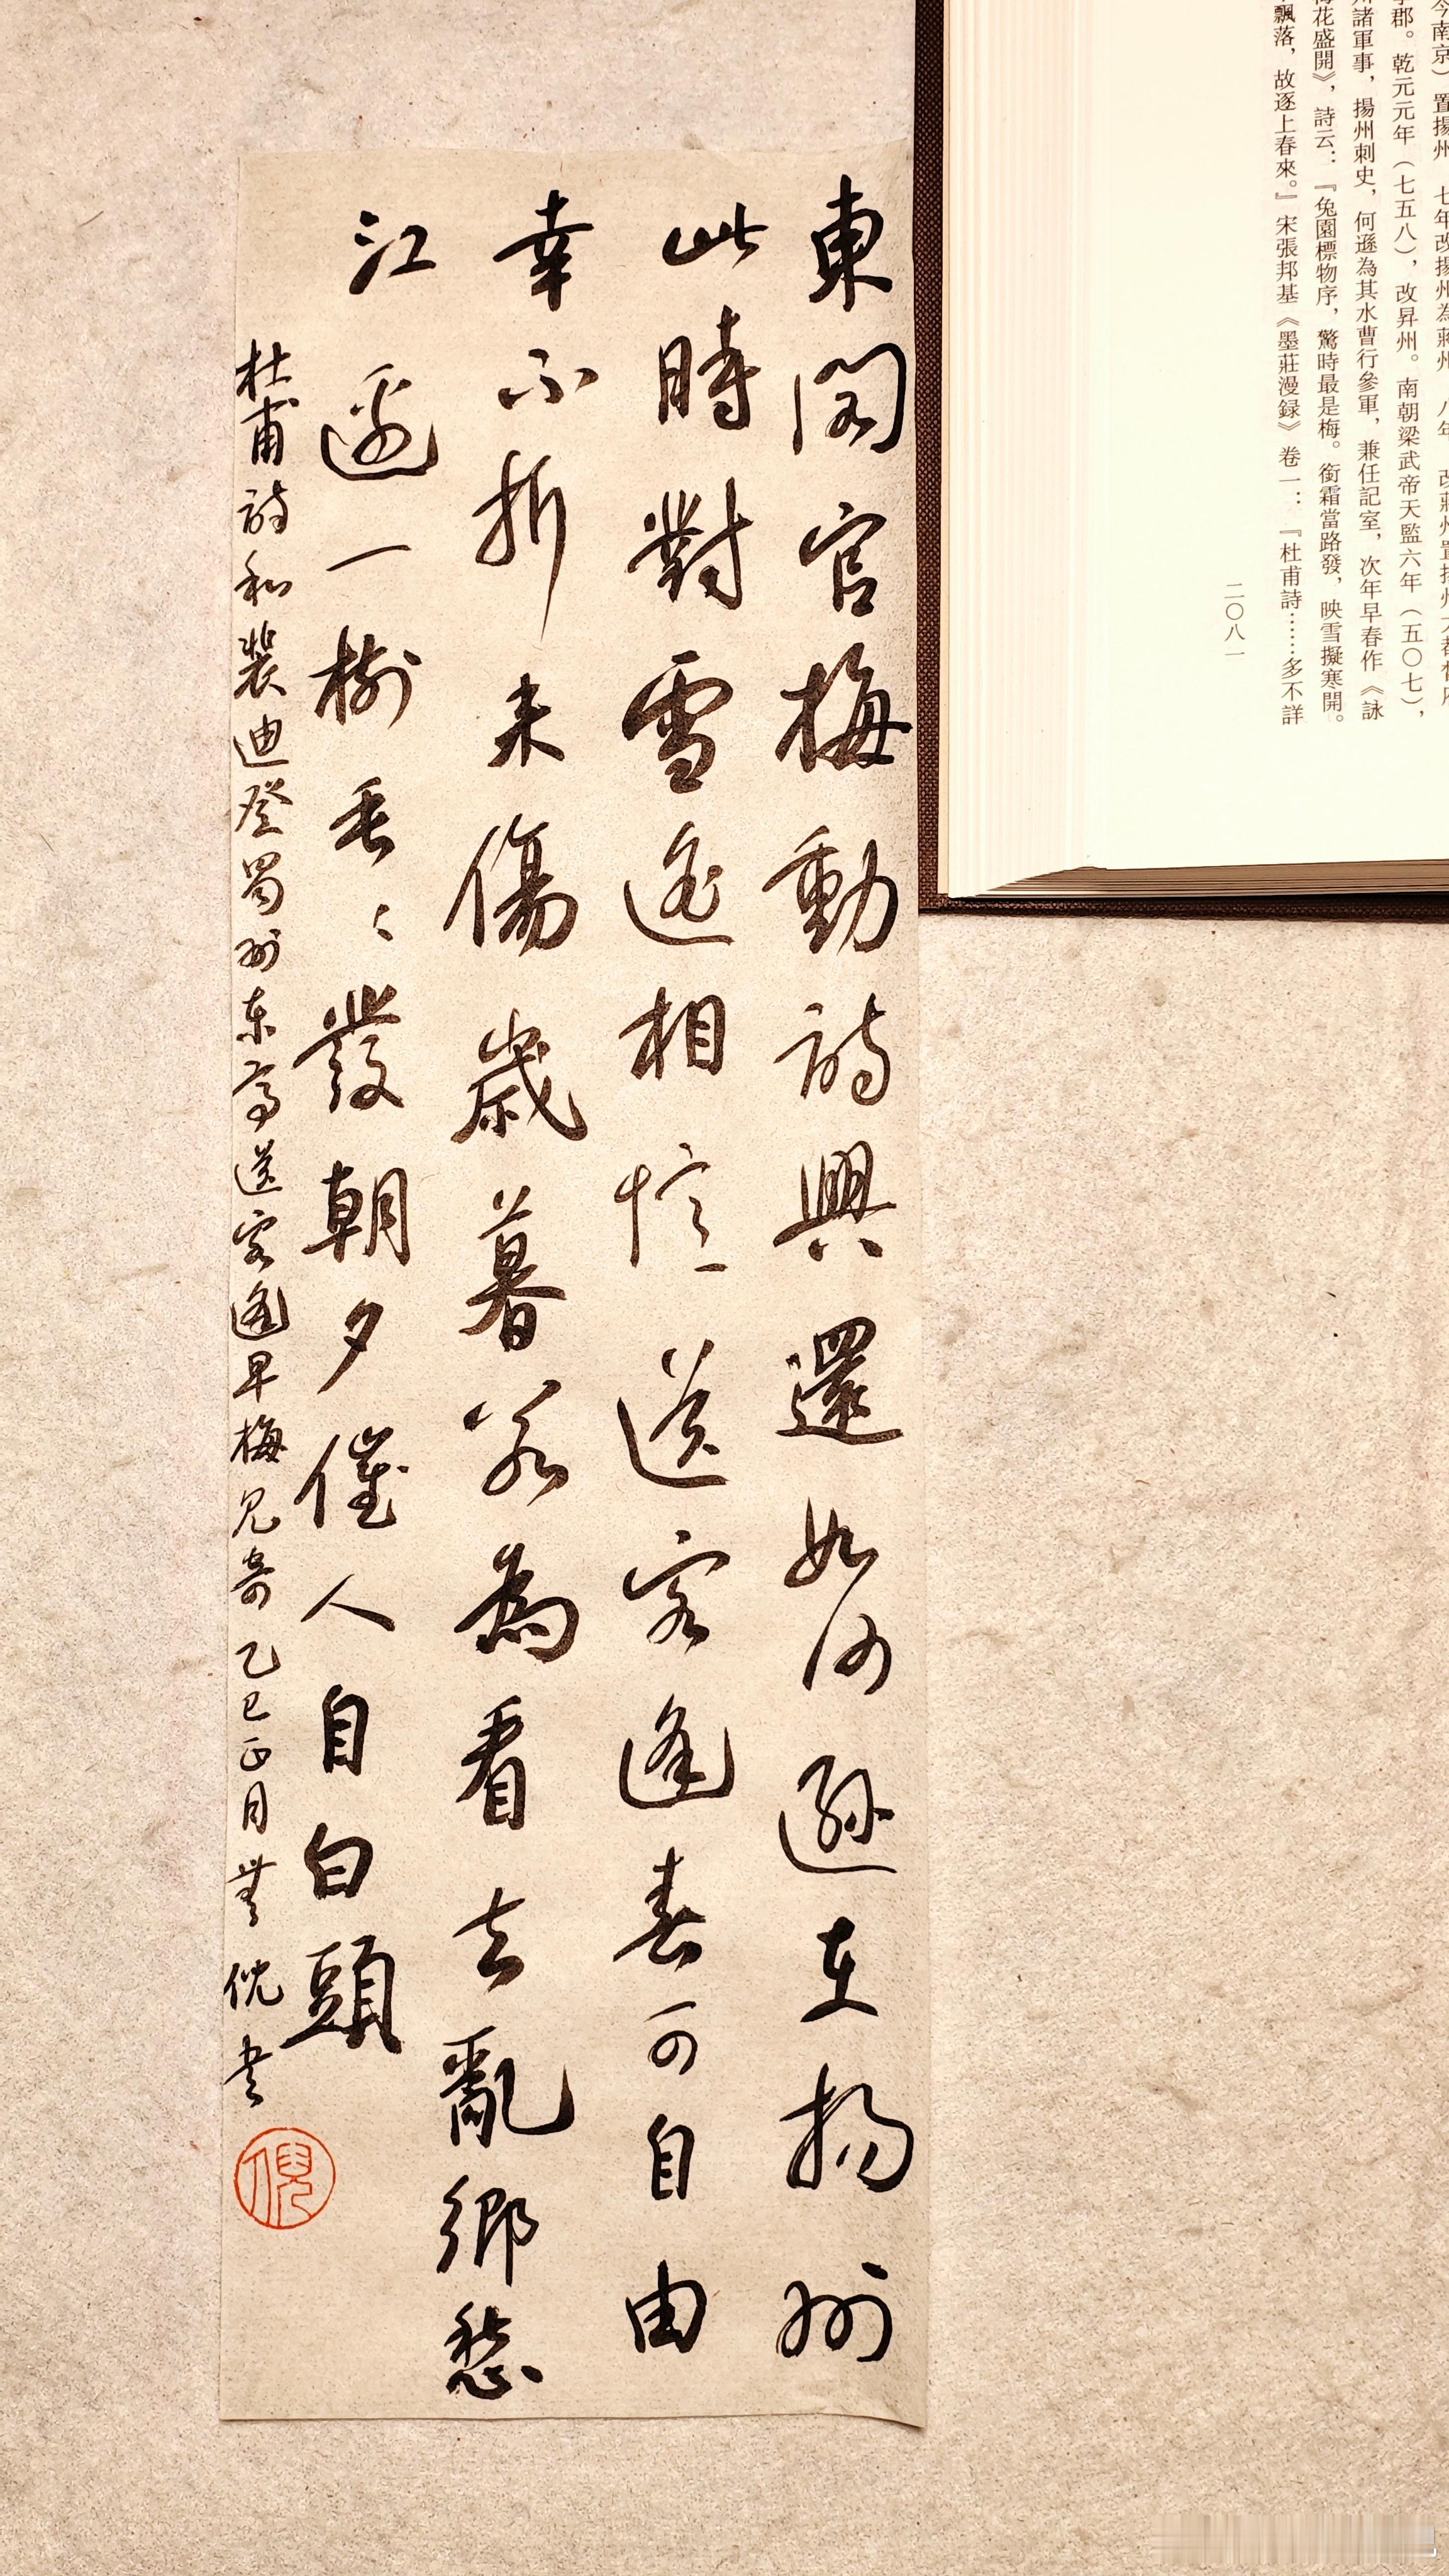 今南京）置揚州
郡。乾元元年（七五八），改昇州。南朝梁武帝天監六年（五〇七），
諸軍事，揚州刺史，何遜為其水曹行參軍，兼任記室，次年早春作《詠
花盛開》，詩云：『兔園標物序，驚時最是梅。銜霜當路發，映雪擬寒開。
飄落，故逐上春來。』宋張邦基《墨莊漫録》卷一：『杜甫詩……多不詳
二〇八一
東閣官梅動詩興還如何遜在揚州
此時對雪遙相憶送客逢春可自由
幸不折來傷歲暮若為看去亂鄉愁
江邊一樹垂〻發朝夕催人自白頭
杜甫詩和裴迪登蜀州东亭送客逢早梅見寄乙巳正月無倪書
倪